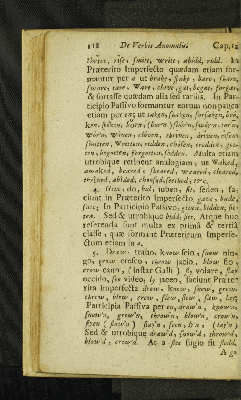 118 De Verbis Anomalis. Cap.12
thrive, rise, smite, write, abide, ride. In
Præterito Imperfecto quædam etiam for-
mantur per a ut brake, spake, bare, share,
sware, tare, ware, clave, gat, begat, forgat,
& fortasse quædam alia sed rariùs. In Par-
ticipio Passivo formantur eorum non pauca
etiam per en; ut taken, shaken, forsaken,
born, shorn, sworn, torn,
worn, woven, cloven, thriven, driven, risen,
smitten, written, ridden, chosen,
ten, begotten, forgotten, sodden. Multa etiam
utrobique retinent analogiam; ut Waked,
awaked, sheared, weaved, cleaved,
abided, &c.
4. Give, do, bid, sedeo, fa-
ciunt in Præterito Imperfecto, gave, bade,
sate; In Participio Passivo,
Sed & utrobique bidd, Atque huc
referenda sunt multa ex prima & tertia
classe, quæ formant Præteritum Imperfe-
ctum etiam in a.
5. Draw traho, know scio, snow nin-
go, grow cresco, throw jacio, blow flo,
crow cano, (instar Galli) fly volare, slay
occido, see video, ly jaceo, faciunt Præte-
rita Imperfecta drew, knew, snew, grew,
threw, blew, crew, flew, slew, saw, lay;
Participia Passiva per en, drawn, known,
snow'n, grow'n, throw'n, blow'n, crow'n,
flow'n) slay'n, seen,
Sed & utrobique draw'd, snow'd, throw'd,
blow'd, crow'd. At à flee fugio fit fledd.
A go